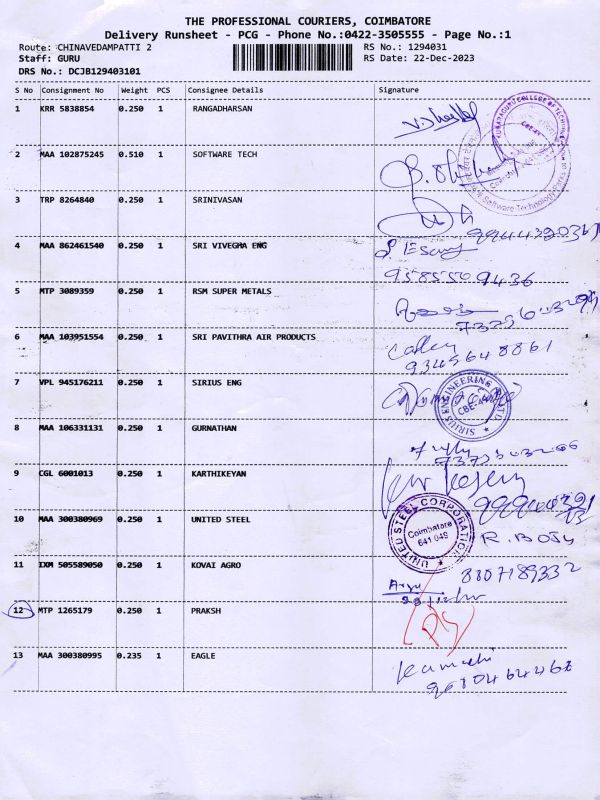 THE PROFESSIONAL COURIERS, COIMBATORE
Delivery Runsheet - PCG - Phone No.:0422-3505555 - Page No.:1
Route: CHINAVEDAMPATTI 2 RS No.: 1294031
Staff: GURU RS Date: 22-Dec-2023
DRS No.: DCJB129403101
S No Consignment No Weight PCS Consignee Details Signature
1 KRR 5838854 0.250 1 RANGADHARSAN
2 MAA 102875245 0.510 1 SOFTWARE TECH
3 TRP 8264840 0.250 1 SRINIVASAN
4 MAA 862461540 0.250 1 SRI VIVEGHA ENG
9585509436
5 MTP 3089359 0.250 1 RSM SUPER METALS
6 MAA 103951554 0.250 1 SRI PAVITHRA AIR PRODUCTS
9345648861
7 VPL 945176211 0.250 1 SIRIUS ENG
SIRIUS ENGINEERING
8 MAA 106331131 0.250 1 GURNATHAN
9 CGL 6001013 0.250 1 KARTHIKEYAN
10 MAA 300380969 0.250 1 UNITED STEEL
UNITED STEEL CORPORATION
Coimbatore
641 049
11 IXM 505589050 0.250 1 KOVAI AGRO
8807189332
12 MTP 1265179 0.250 1 PRAKSH
13 MAA 300380995 0.235 1 EAGLE